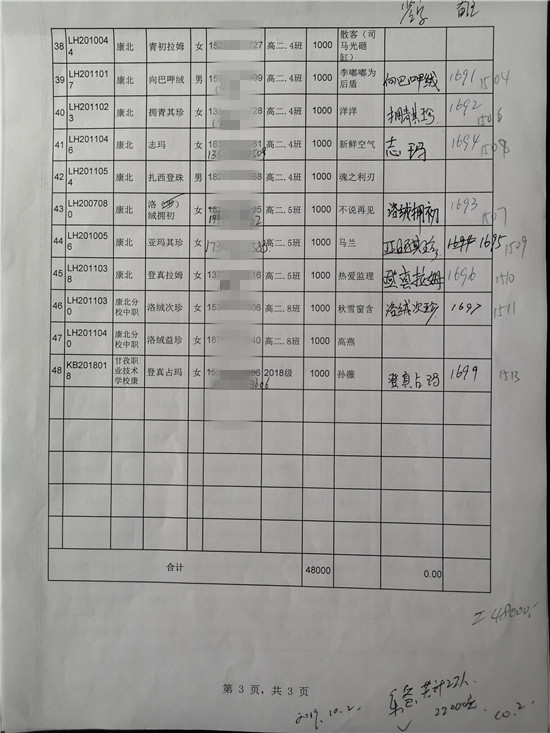 签字 备注
38 LH2010044 康北 青初拉姆 女 高二.4班 1000 散客（司马光砸缸） 1691 1504
39 LH2011017 康北 向巴呷绒 男 高二.4班 1000 李嘟嘟为后盾 向巴呷绒
40 LH2011023 康北 拥青其珍 女 高二.4班 1000 洋洋 拥青其珍 1692 1506
41 LH2011046 康北 志玛 女 高二.4班 1000 新鲜空气 志玛 1694 1508
42 LH2011054 康北 扎西登珠 男 高二.4班 1000 魂之利刃
43 LH2007080 康北 绒拥初 女 高二.5班 1000 不说再见 洛绒拥初 1693 1507
44 LH2010056 康北 亚玛其珍 女 高二.5班 1000 马兰 1695 1509
45 LH2011038 康北 登真拉姆 女 高二.5班 1000 热爱监理 登真拉姆 1696 1510
46 LH2011030 康北分校中职 洛绒次珍 女 高二.8班 1000 秋雪窗含 洛绒次珍 1697 1511
47 LH2011040 康北分校中职 洛绒益珍 女 高二.8班 1000 高燕
48 KB2018018 甘孜职业技术学校康 登真占玛 女 2018级 1000 孙薇 登真占玛 1699 1513
合计 48000 0.00
48000.
第 3 页，共 3 页
2019.10.2. 共计22人
22000元 10.2.